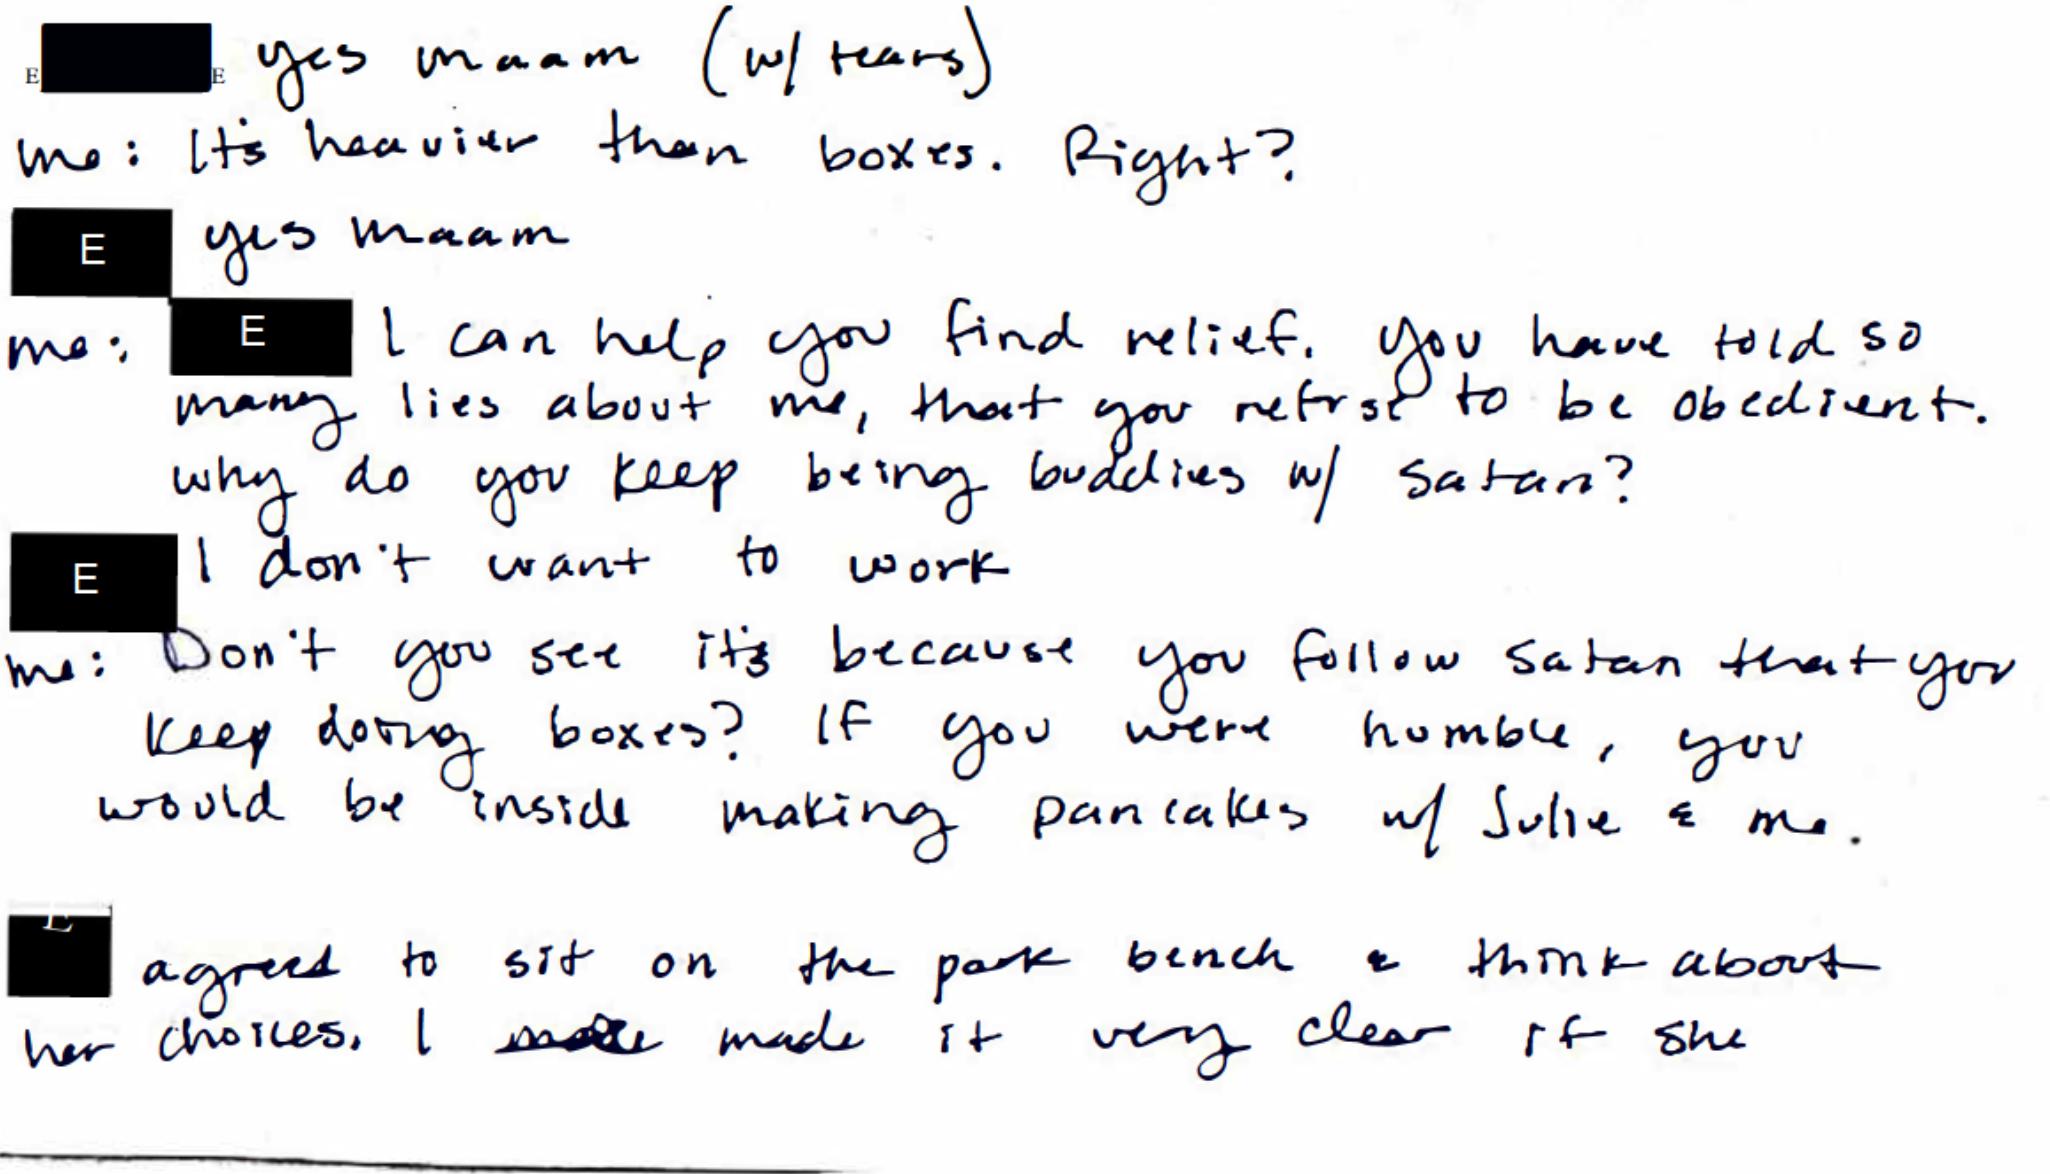 E E yes maam (w/ tears)
me: It's heavier than boxes. Right?
E yes maam
me: E I can help you find relief. You have told so
many lies about me, that you refuse to be obedient.
why do you keep being buddies w/ satan?
E I don't want to work
me: Don't you see it's because you follow satan that you
keep doing boxes? If you were humble, you
would be inside making pancakes w/ Julie & me.
E agreed to sit on the park bench & think about
her choices. I made it very clear if she